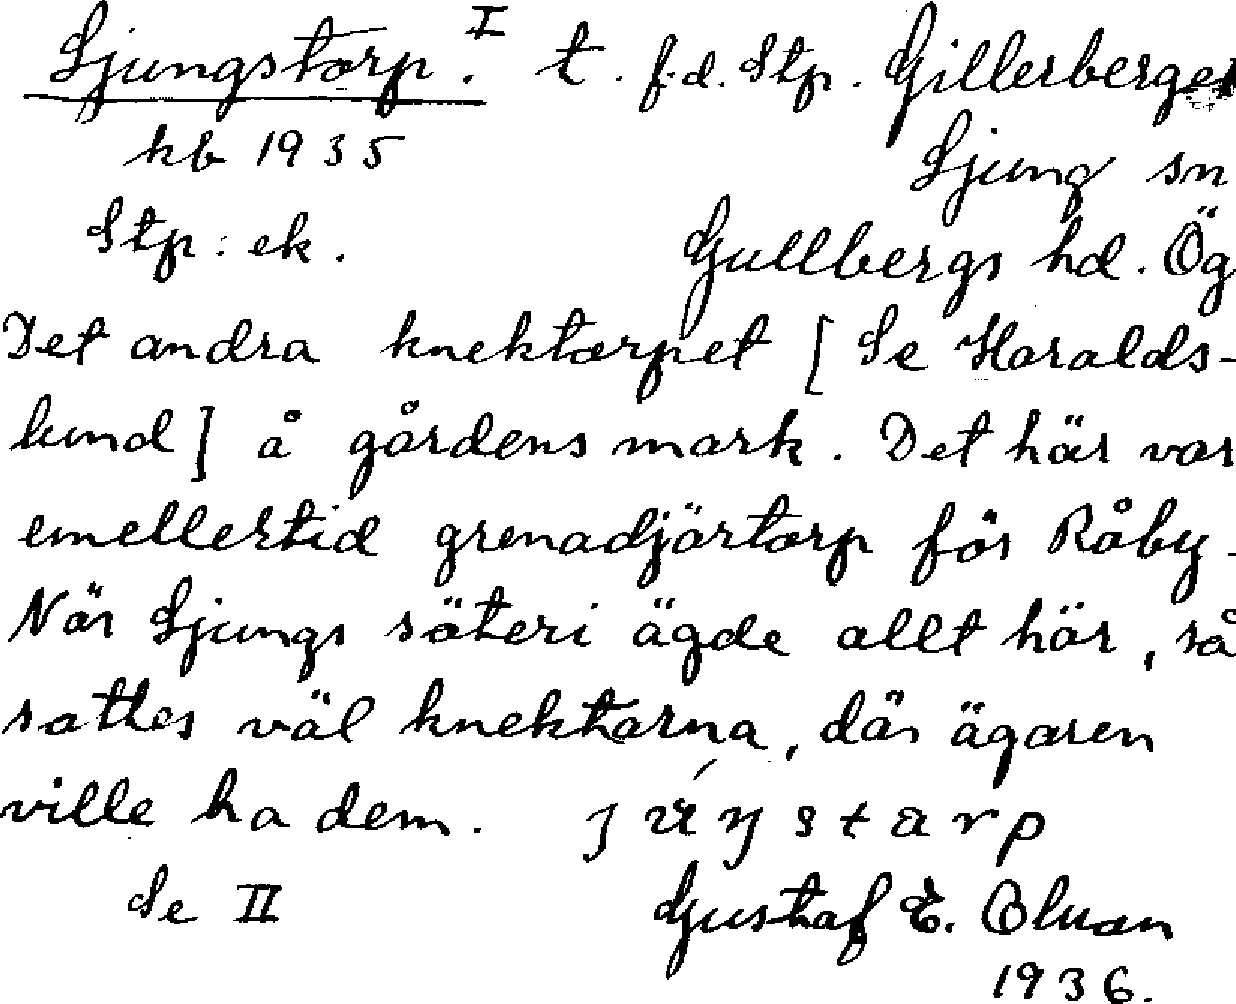 Ljungstorp. I t. f.d. Stp. Gillerberget
kb 1935 Ljung sn
Stp. ek. Gullbergs hd. Ög
Det andra knektorpet [Se Haralds-
lund] å gårdens mark. Det här var
emellertid grenadjörtorp för Råby.
När Ljungs säteri ägde allt här, så
sattes väl knektarna, där ägaren
ville ha dem.
Se II Gustaf E. Olsson
1936.